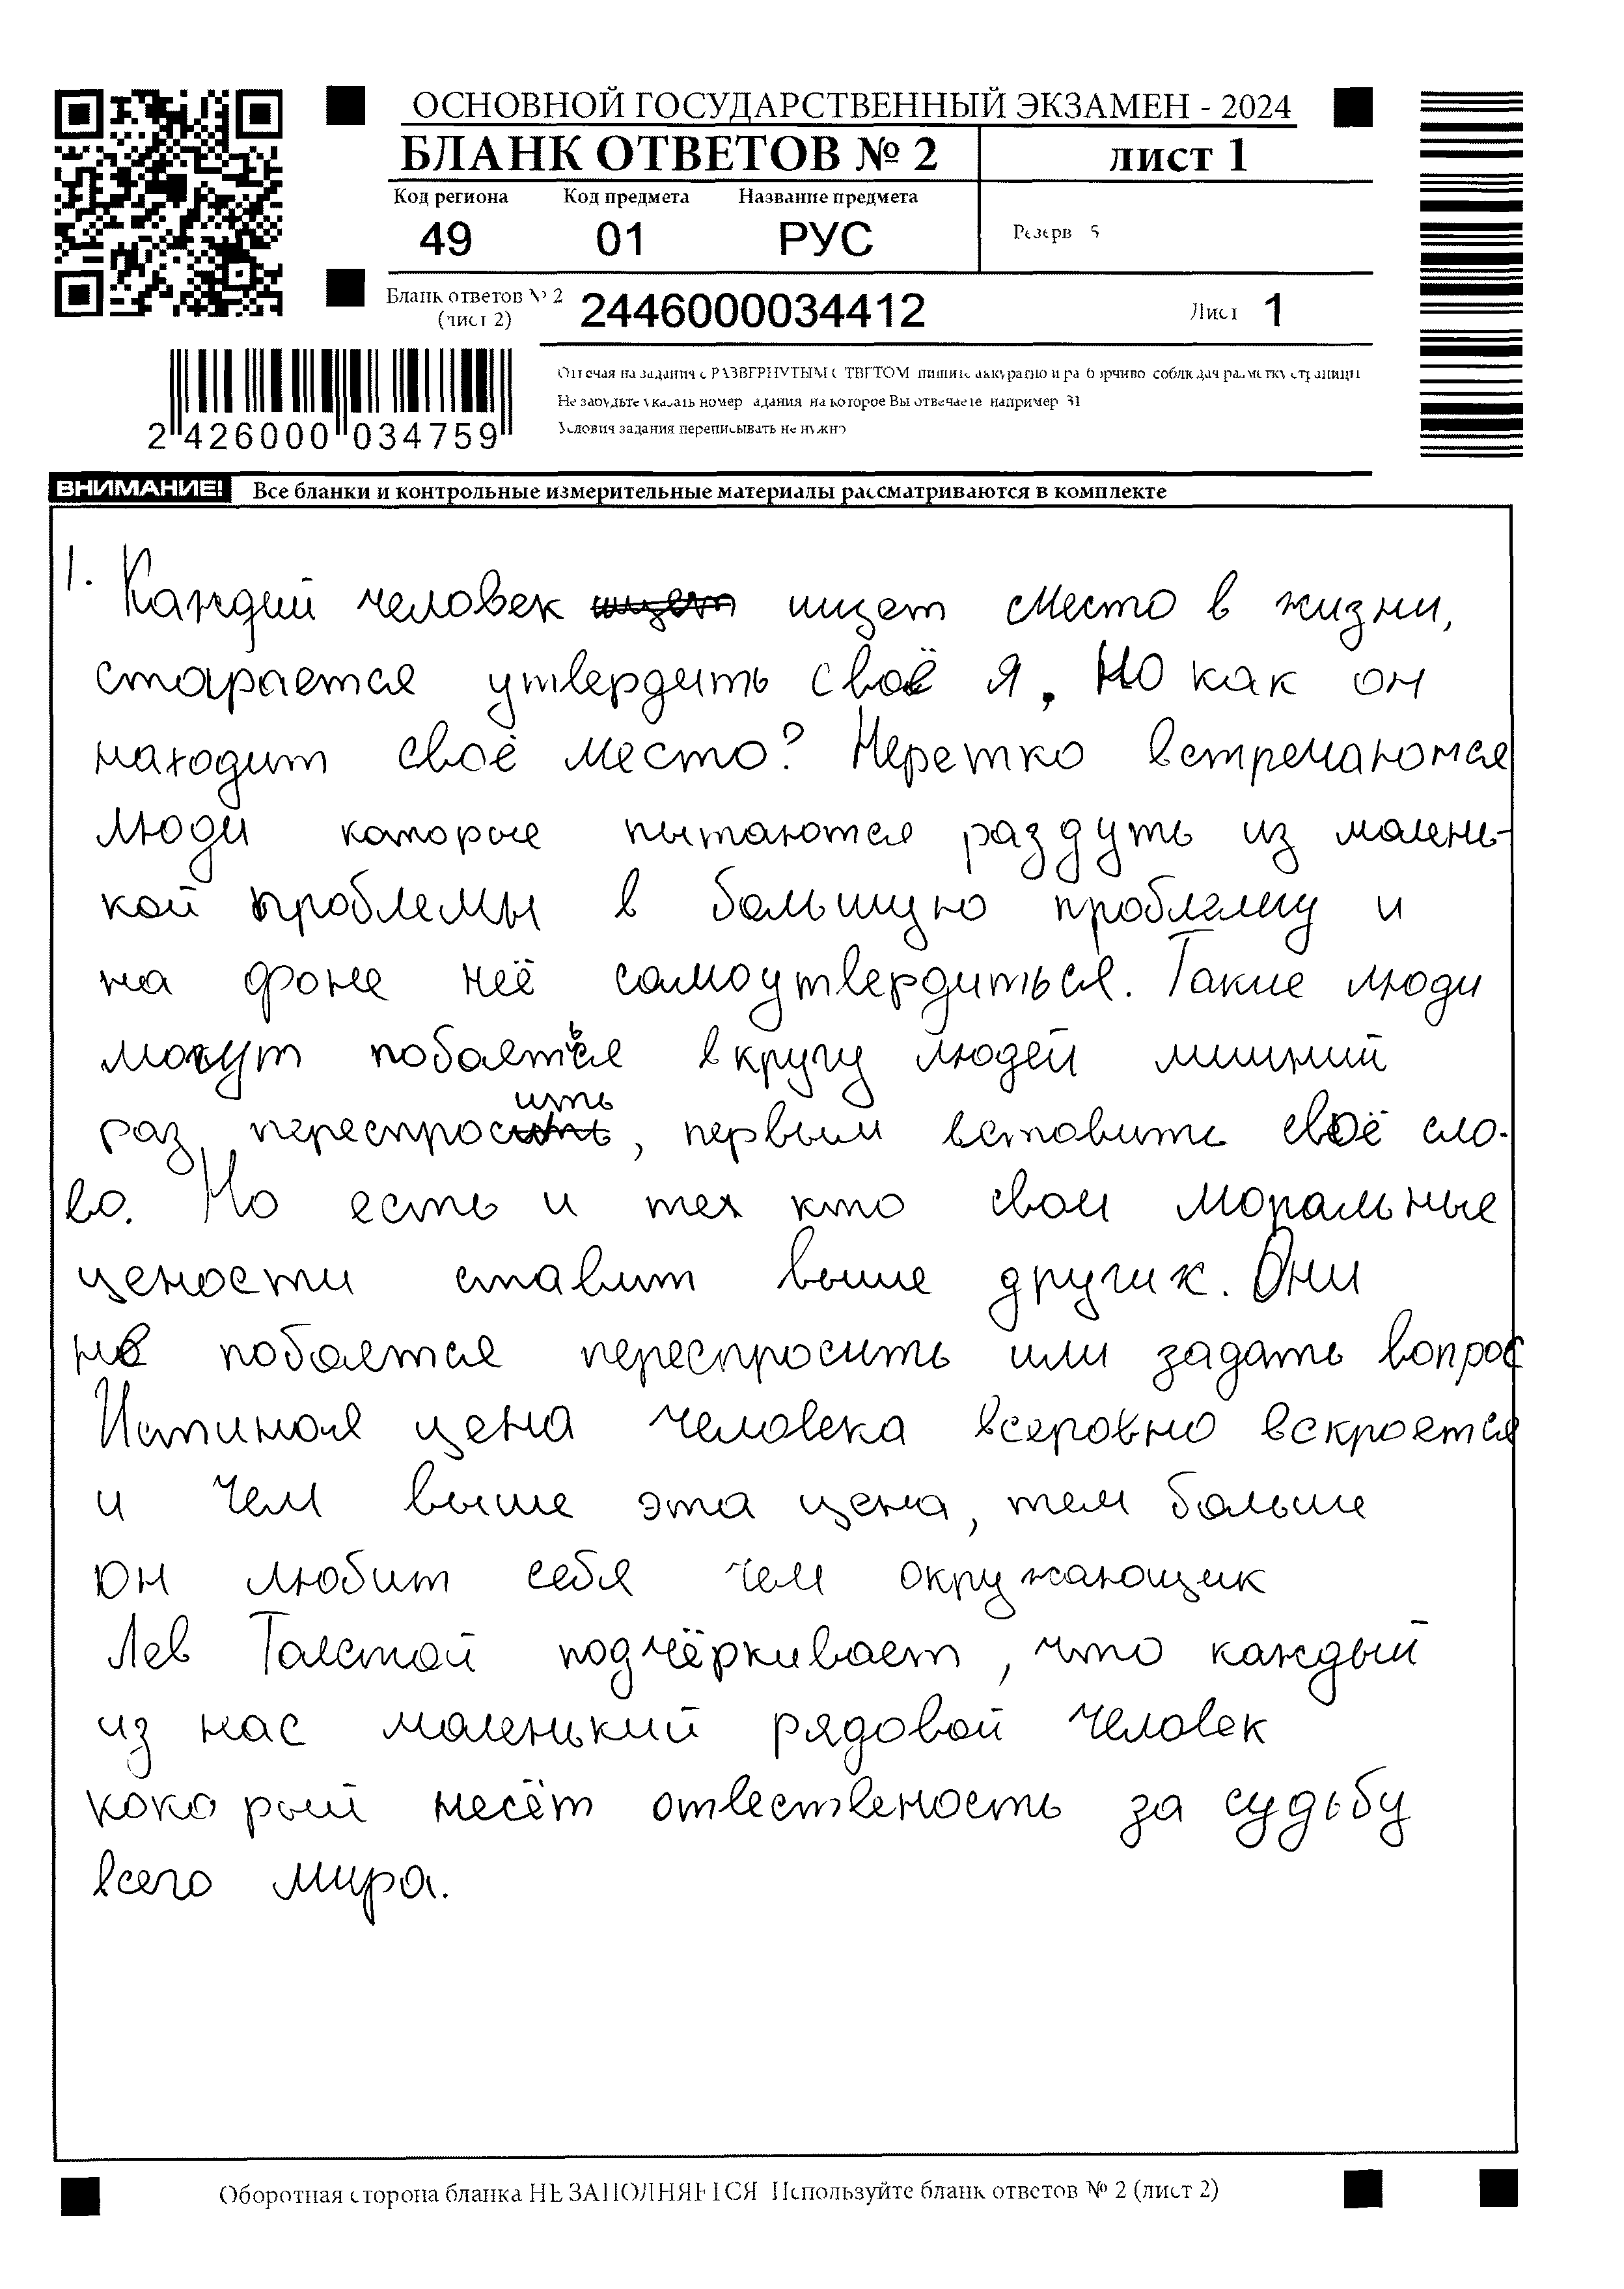 ОСНОВНОЙ ГОСУДАРСТВЕННЫЙ ЭКЗАМЕН - 2024
БЛАНК ОТВЕТОВ № 2 лист 1
Код региона Код предмета Название предмета
49 01 РУС Резерв 5
Бланк ответов № 2
(лист 2) 2446000034412 Лист 1
2 426000 034759
Отвечая на задания с РАЗВЕРНУТЫМ ОТВЕТОМ пишите аккуратно и разборчиво соблюдая разметку страницы
Не забудьте указать номер задания на которое Вы отвечаете например 31
Условия задания переписывать не нужно
ВНИМАНИЕ! Все бланки и контрольные измерительные материалы рассматриваются в комплекте
1. Каждый человек ищет место в жизни,
старается утвердить своё я. Но как он
находит своё место? Неретко встречаются
люди которые пытаются раздуть из малень-
кой проблемы в большую проблему и
на фоне неё самоутвердиться. Такие люди
могут побояться в кругу людей лишний
раз переспросить, первым вставить своё сло-
во. Но есть и тех кто свои моральные
цености ставит выше других. Они
не побоятся переспросить или задать вопрос
Истиная цена человека всеровно вскроется
и чем выше эта цена, тем больше
он любит себя чем окружающих
Лев Толстой подчёркивает, что каждый
из нас маленький рядовой человек
кокорый несёт отвественость за судьбу
всего мира.
Оборотная сторона бланка НЕ ЗАПОЛНЯЕТСЯ Используйте бланк ответов № 2 (лист 2)